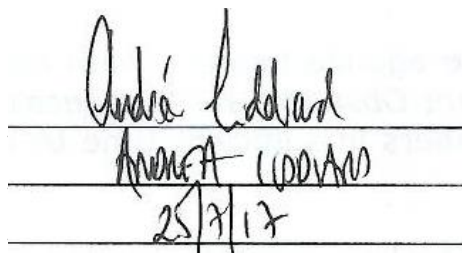 Andrea Liddiard
ANDREA LIDDIARD
25/7/17